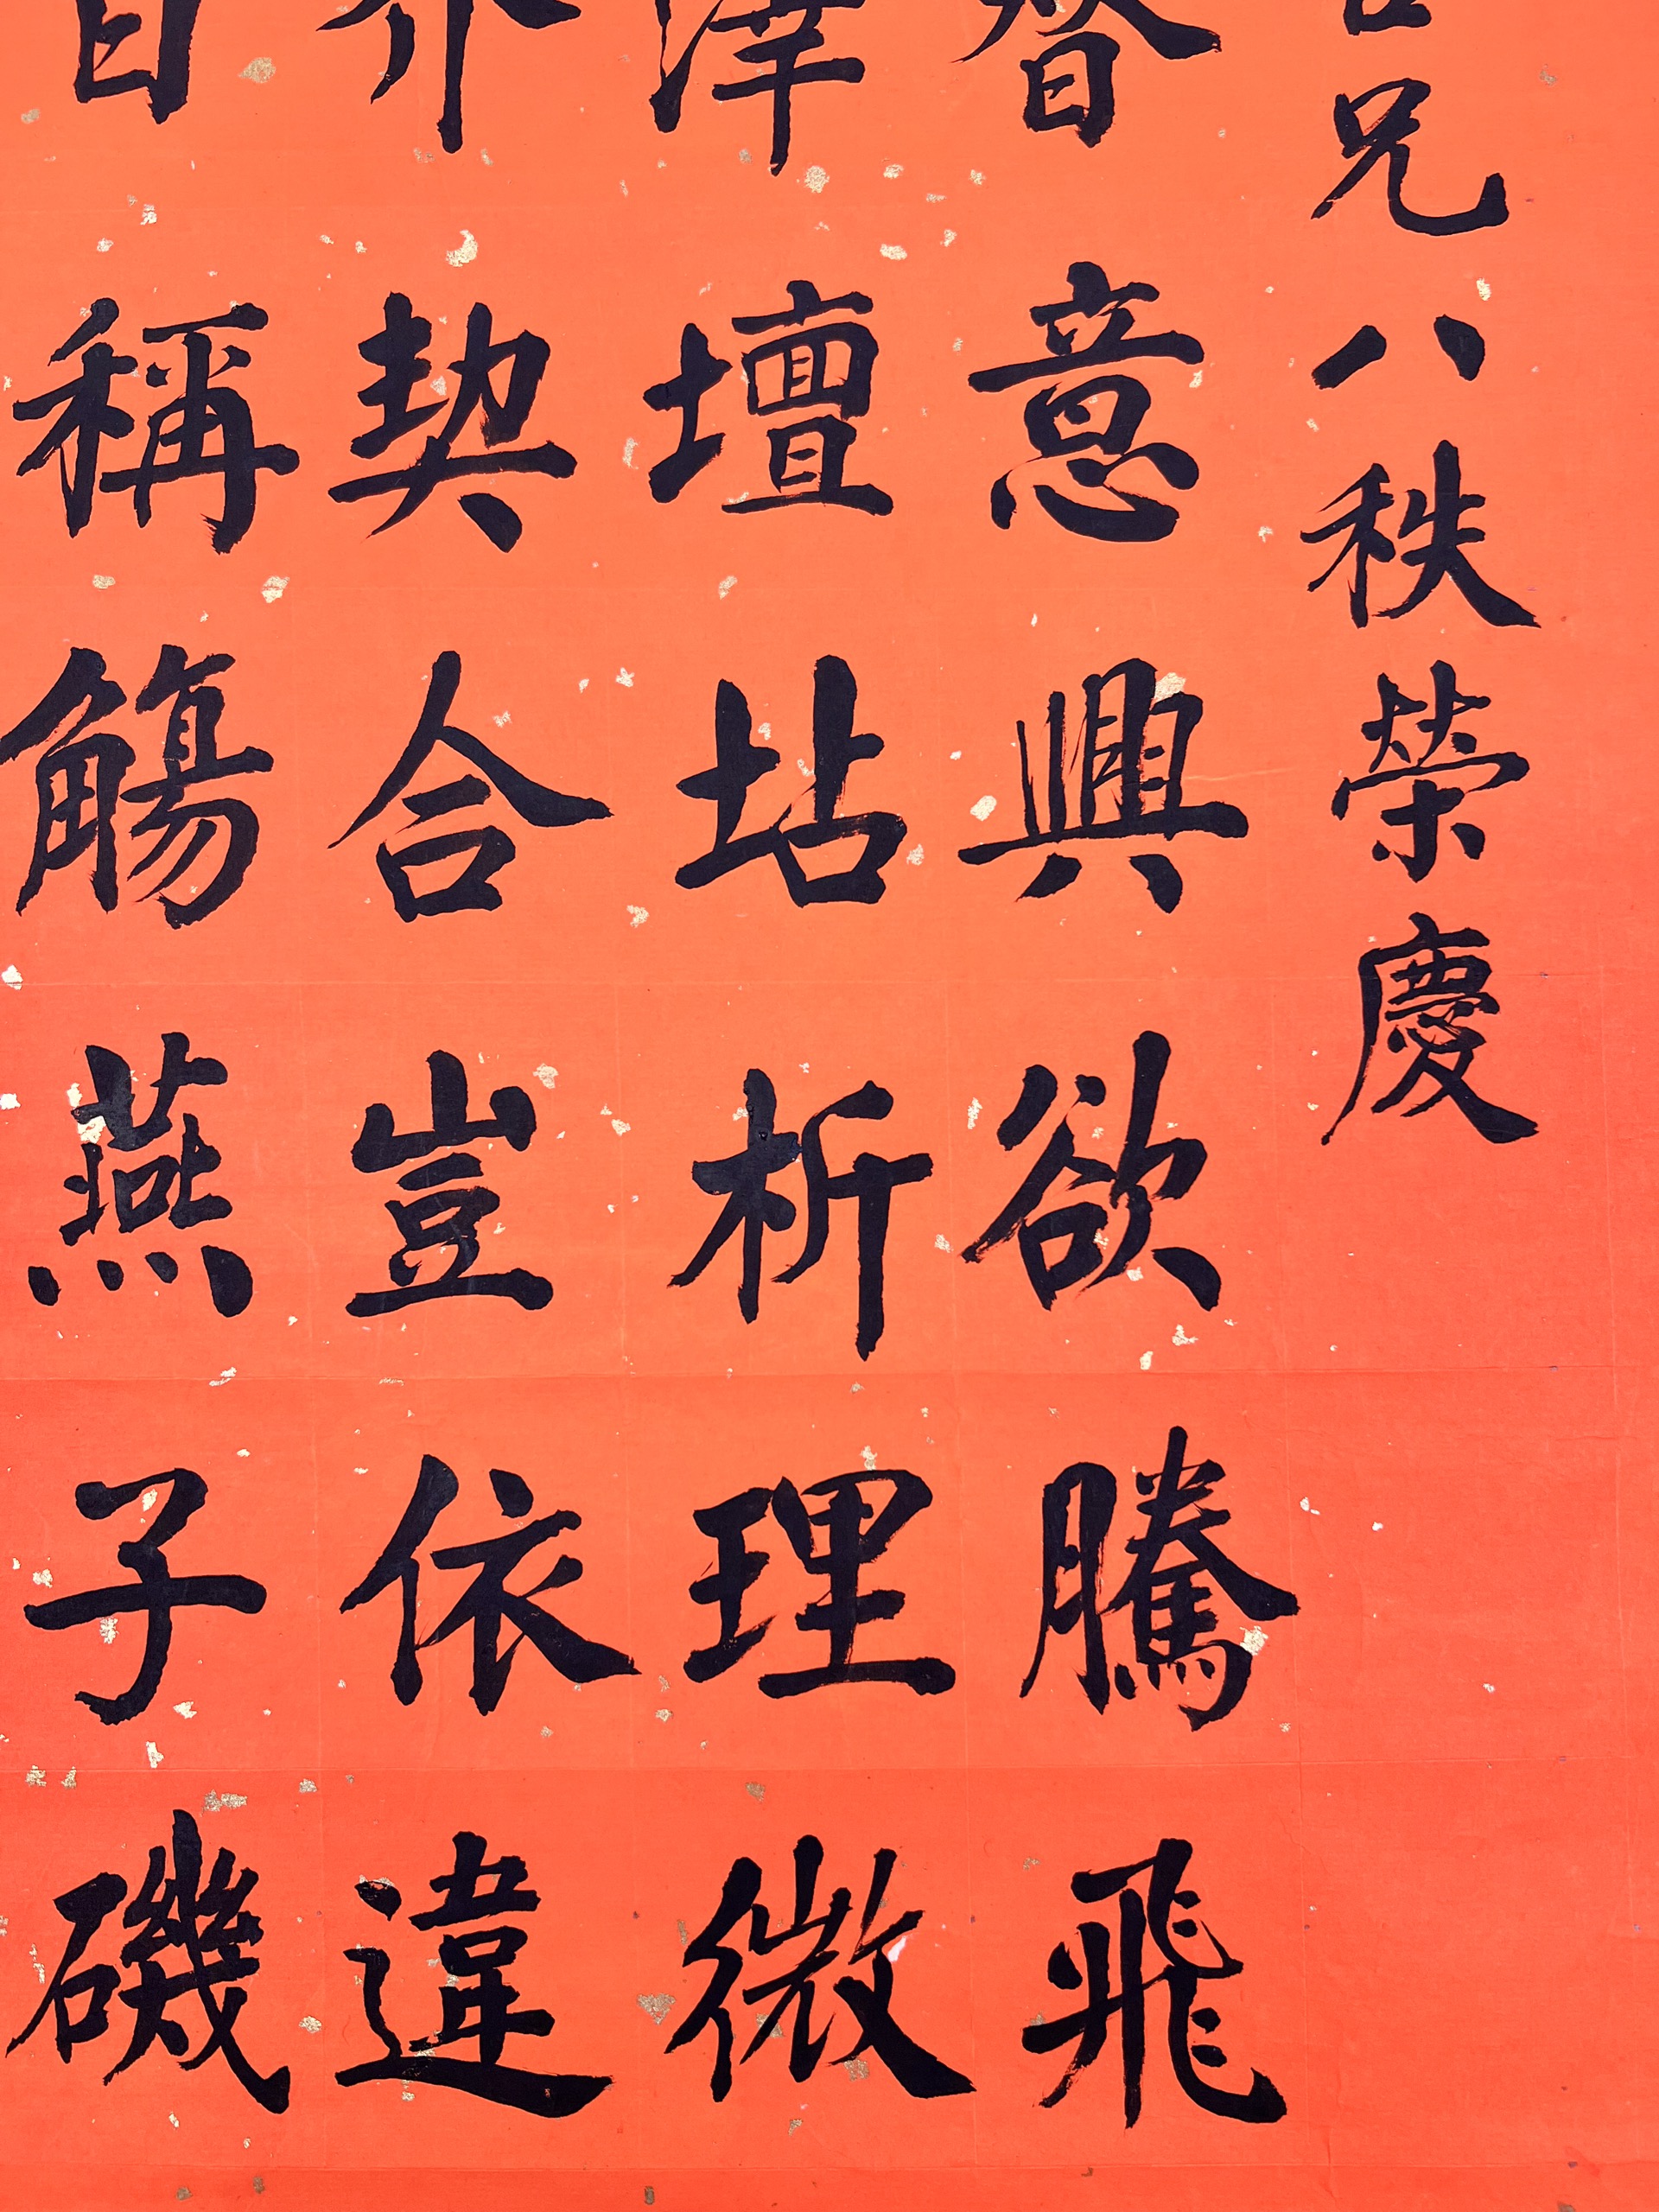 兄八秩榮慶
意興欲騰飛
壇坫析理微
契合豈依違
稱觴燕子磯